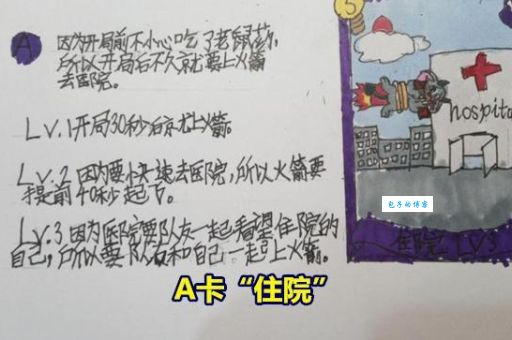 A
因为开局前不小心吃了老鼠药,
所以开局后不久就要上火箭
去医院。
Lv.1开局30秒后就上火箭。
Lv.2 因为要快速去医院,所以火箭要
提前40秒起飞。
Lv.3 因为医院要队友一起看望住院的
自己,所以要队友和自己一起上火箭。
5
hospita
包子的博客
住院 LV.3
A卡“住院”